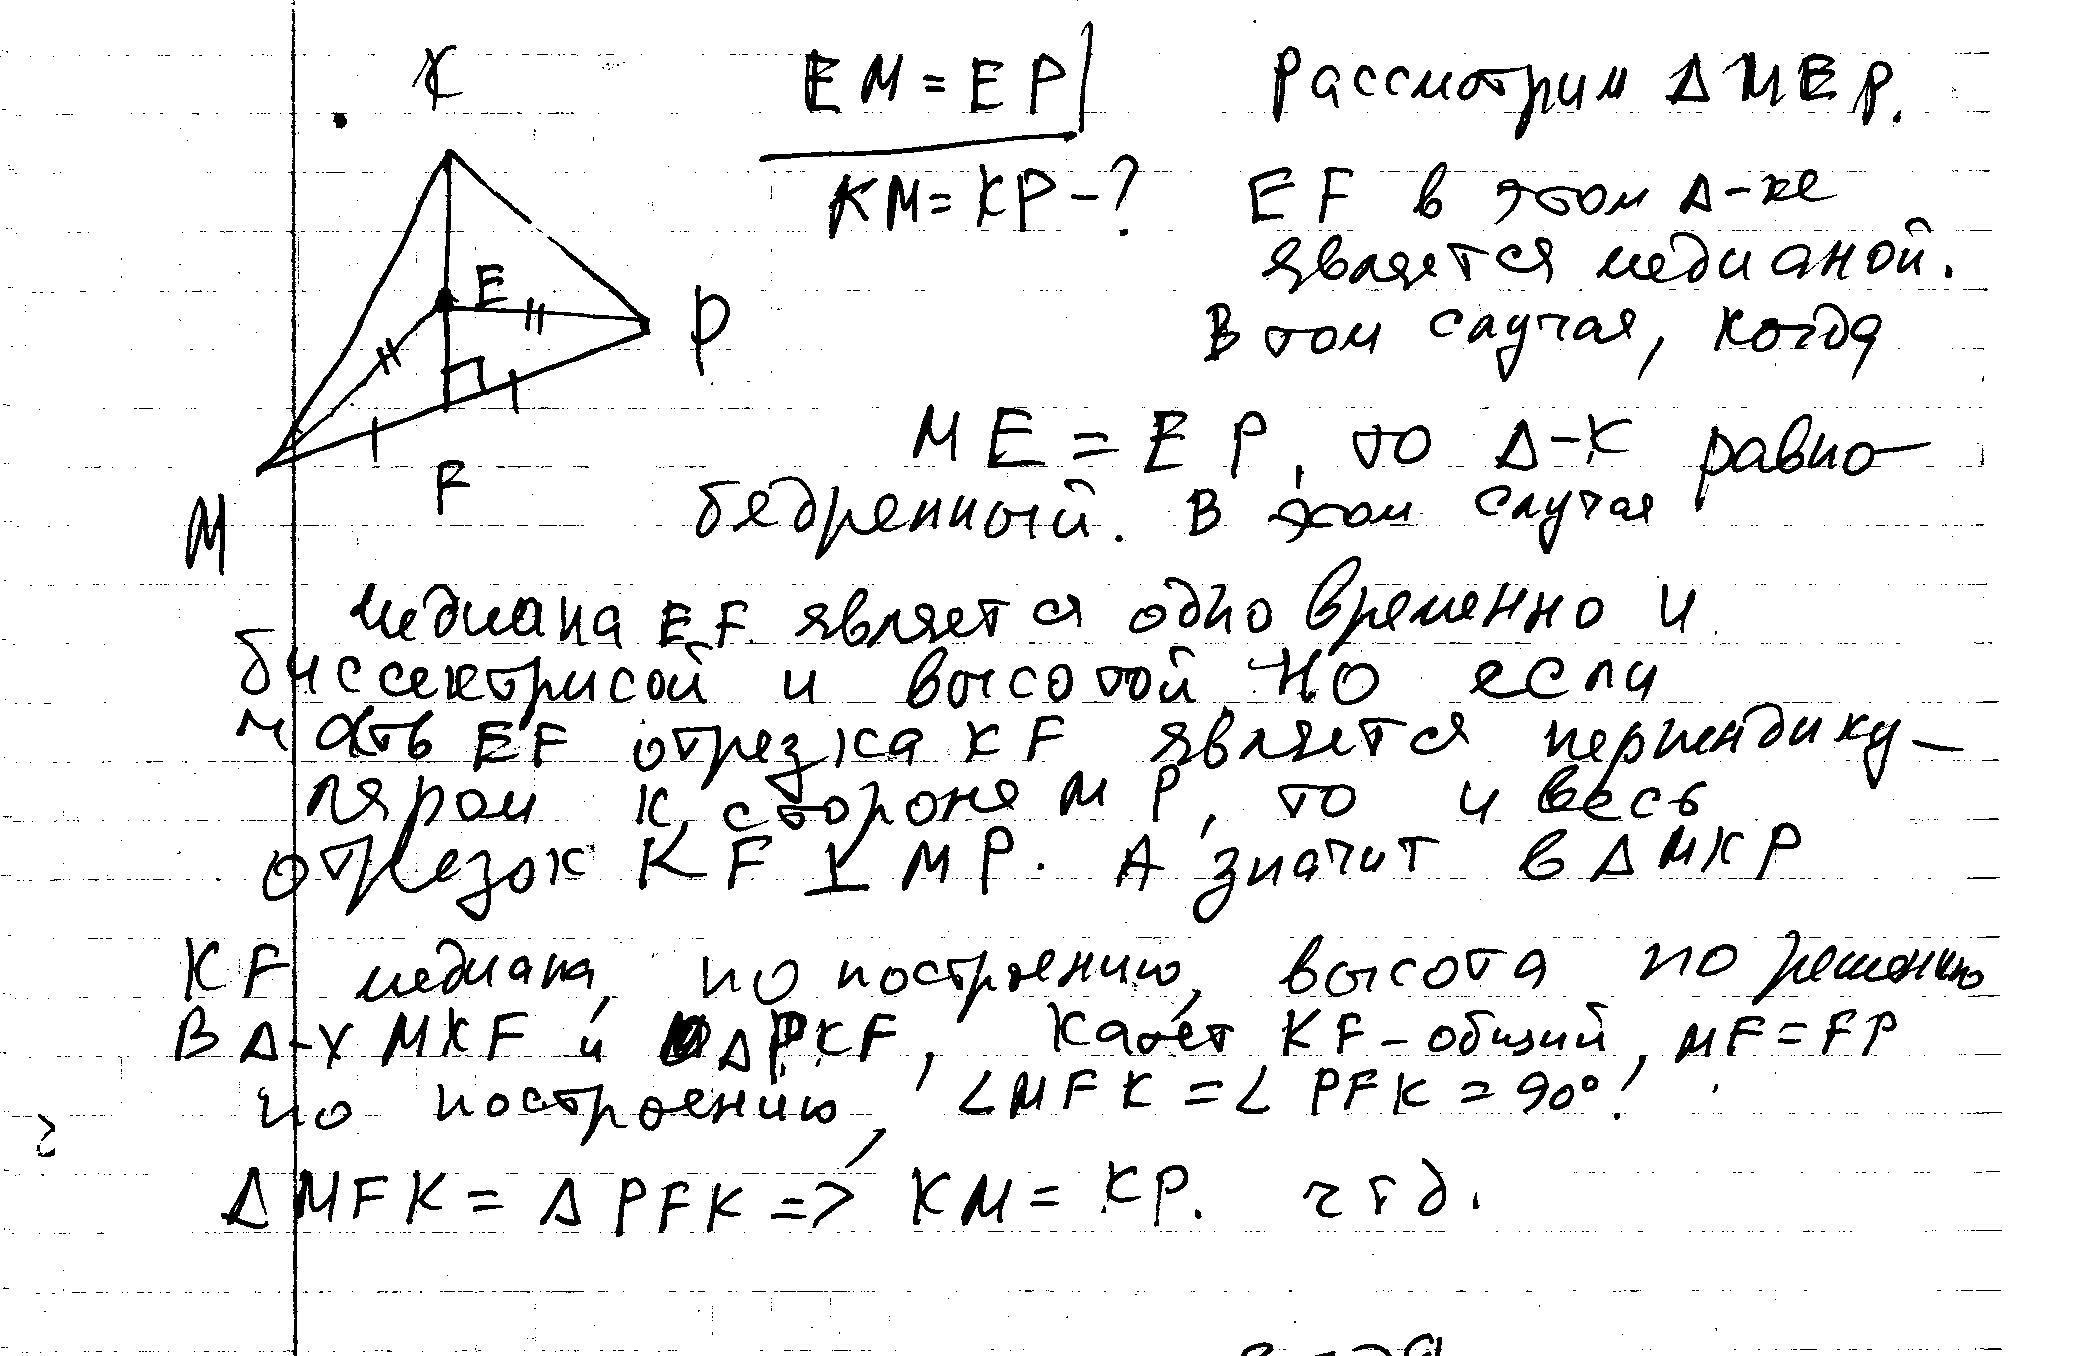 K
EM = EP
KM = KP - ?
E
P
F
M
Рассмотрим Δ MEP.
EF в этом Δ-ке
является медианой.
В том случая, когда
ME = EP, то Δ-к равно-
бедренный. В этом случая
медиана EF является одновременно и
биссектрисой и высотой. Но если
часть EF отрезка KF является перпендику-
ляром к стороне MP, то и весь
отрезок KF ⊥ MP. А значит в Δ MKP
KF медиана, по построению, высота по решению
В Δ-х MKF и Δ PKF, катет KF - общий, MF = FP
по построению, ∠MFK = ∠PFK = 90°!
Δ MFK = Δ PFK => KM = KP. чтд.